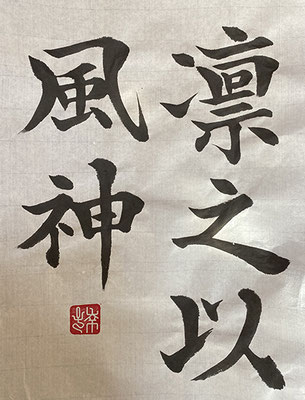 凛之以
風神